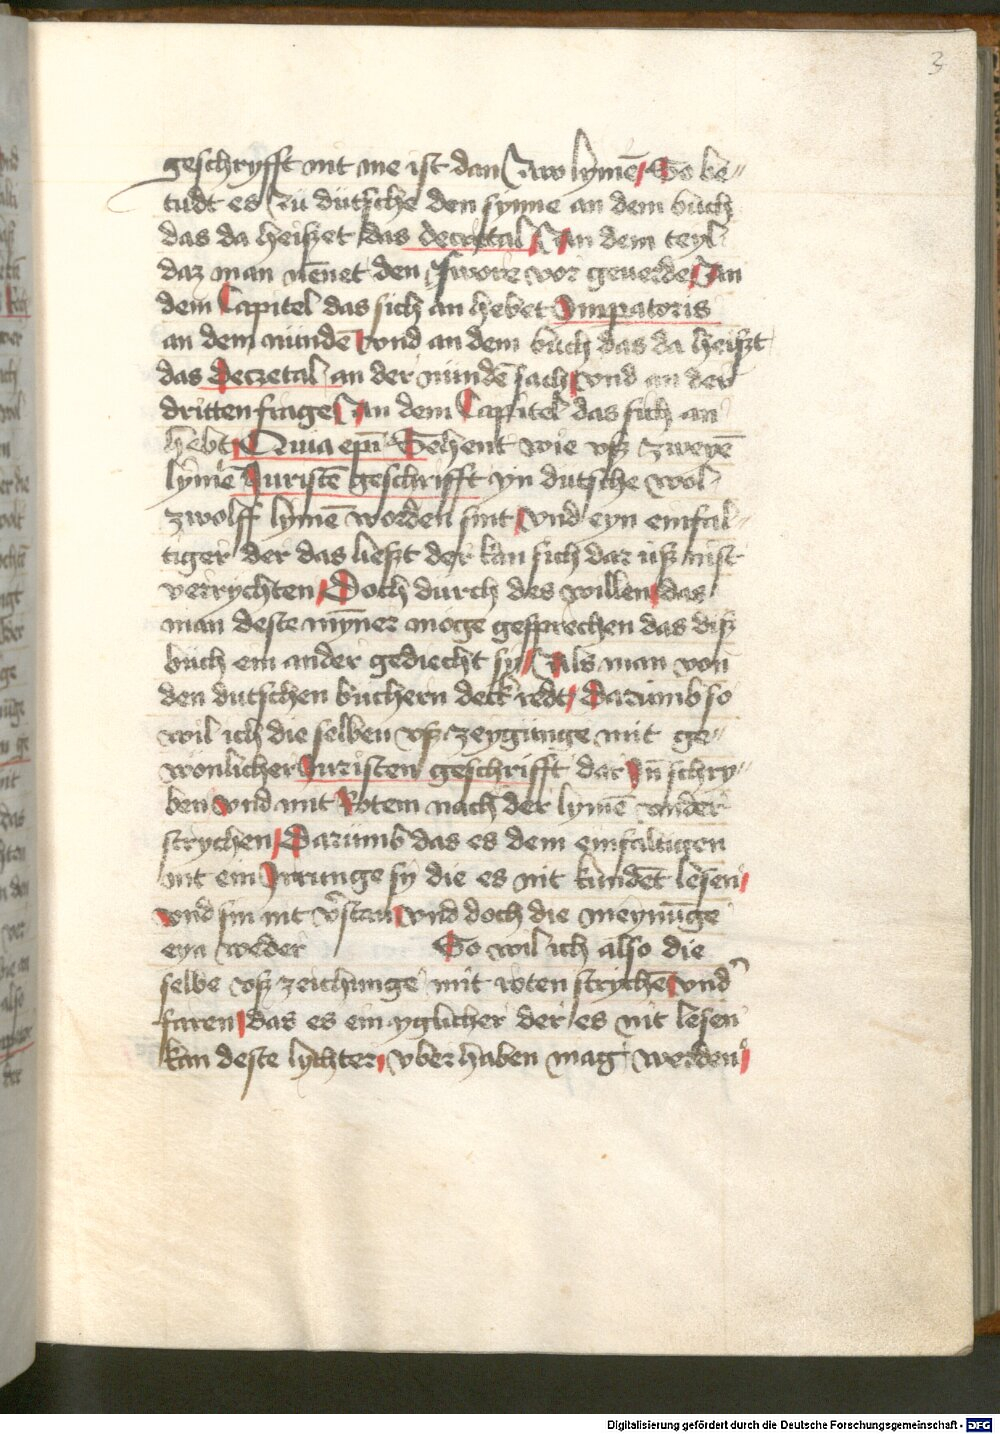 3
geschryfft nit me ist dan Zwo lymē / So be⸗
tudt es Zü dütsche den synne an dem büch
das da heiszet das decretal / An dem teyl
daz man nēnet den swore vor geuerde / In
dem Capitel das sich an hebet Impatoris
an dem nünden̄ vnd an dem büch das da heiszt
das Decretal an der nünden̄ sach / vnd an der
dritten frage / An dem Capitel das sich an
hebt / Quia epī Sehent wie vsz zweyē
lymē Juristē geschrifft yn dutsche wol
zwolff lymē worden sint / vnd eyn einfal⸗
tiger der das lieszt der kan sich dar üsz nist
verrychten / Doch durch des willen / das
man deste mȳner möge gesprechen das disz
büch ein ander gediecht sy / Als man von
den dutschen büchern deck redt / Darümb so
wil ich die selben vsz zeygünge mit ge⸗
wönlicher Juristen geschrifft dar Jn̄ schry⸗
ben vnd mit Rotem nach der lymē vnder
strychen / Darümb das es dem einfaltigen
nit ein Jrrunge sy die es nit kündēt lesen /
vnd sin nit v̄stan / vnd doch die meynūge
eyn weder So wil ich also die
selbe vsz zeichunge mit roten strychē / vnd
faren / das es ein yglicher der es nit lesen
kan deste lychter / vberhaben mag werden /
Digitalisierung gefördert durch die Deutsche Forschungsgemeinschaft - DFG